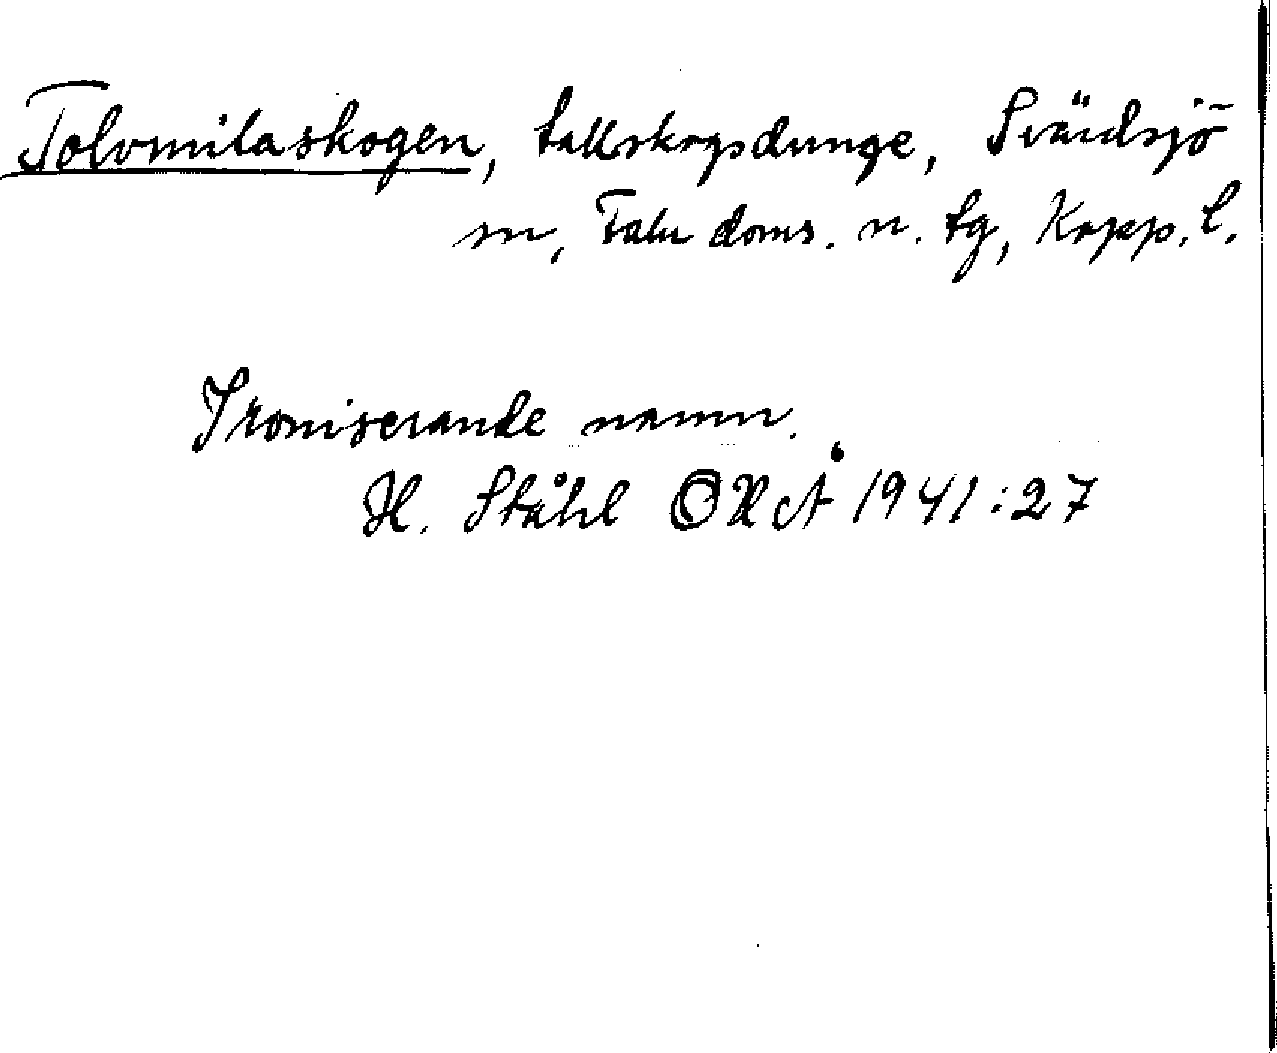 Tolvmilaskogen, tallskogsdunge, Svärdsjö
sn, Falu doms. n. tg, Kopp. l.
Ironiserande namn.
H. Ståhl OHÅ 1941:27